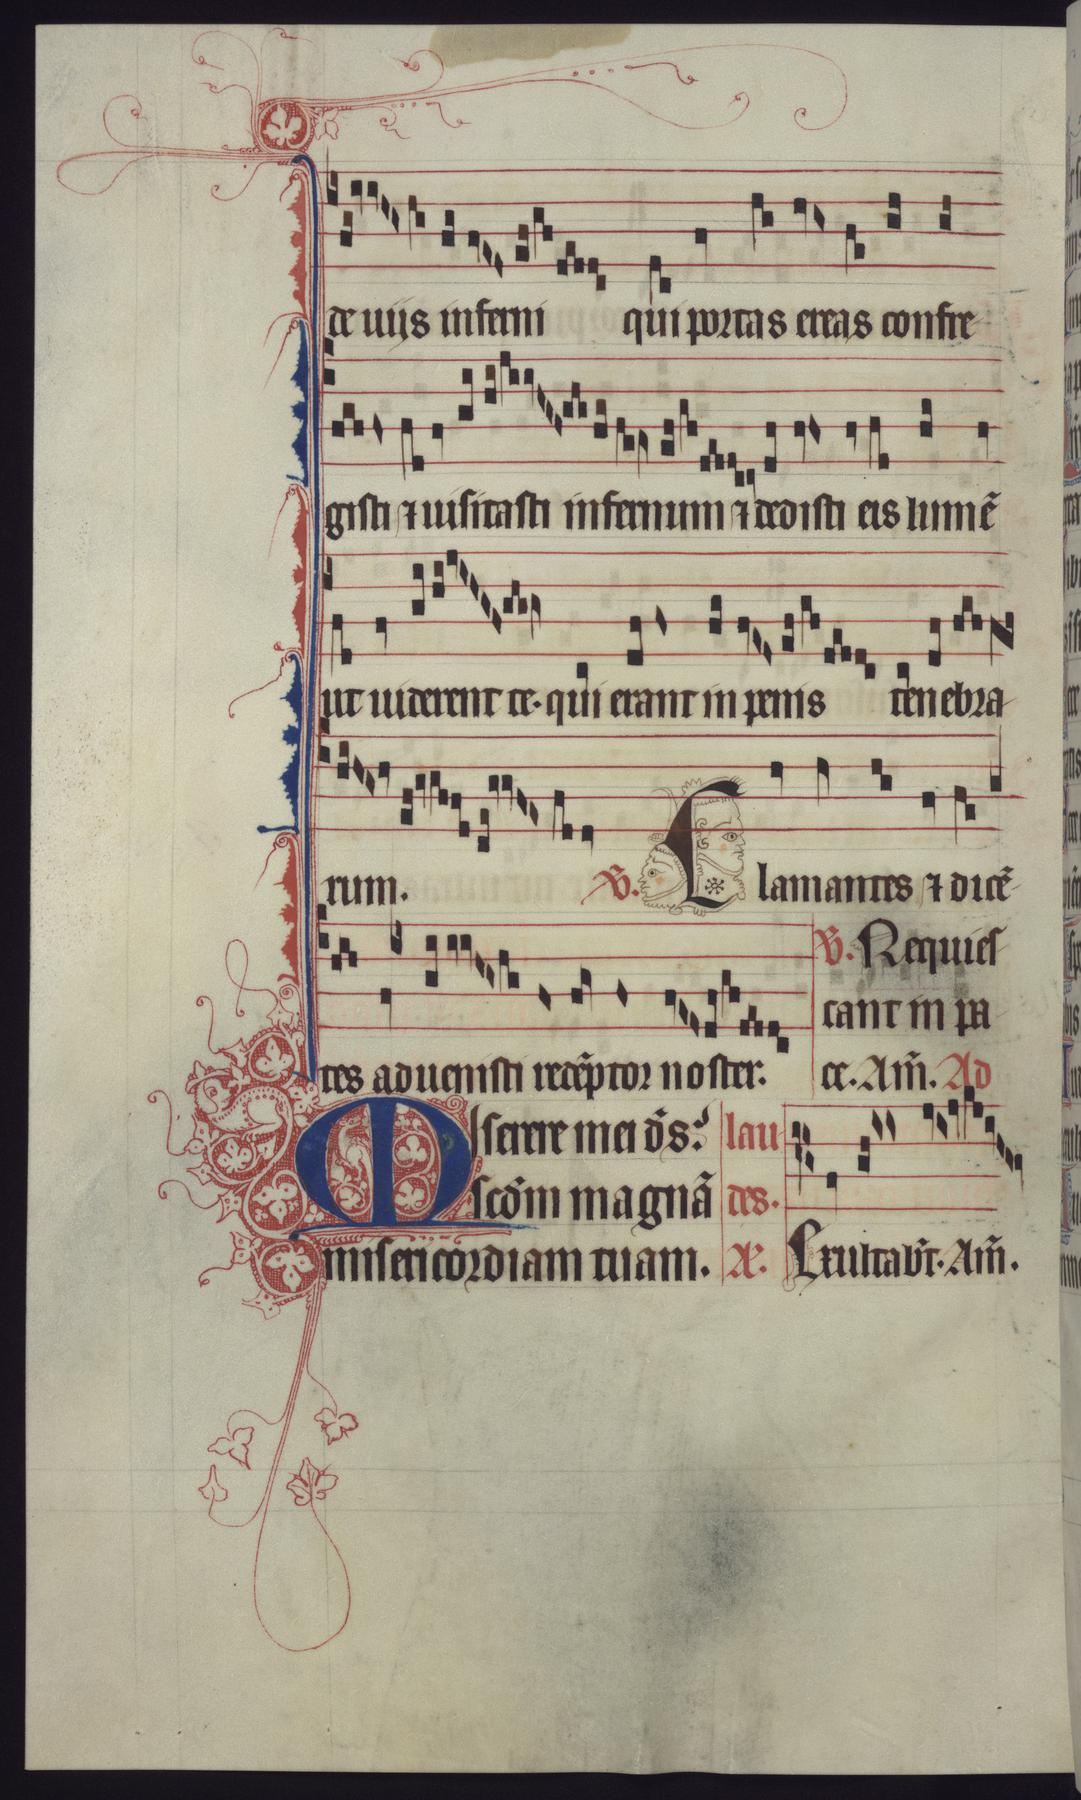 de uiis inferni qui portas ereas confre
gisti ⁊ uisitasti infernum ⁊ dedisti eis lumē
ut uiderent te. qui erant in penis tenebra
rum. V̄. Clamantes ⁊ dicē
tes aduenisti redēptor noster.
V̄. Requies
cant in pa
ce. Am̄. Ad
Miserere mei ds̄:
scd̄m magnā
misericordiam tuam.
lau
des.
Æ. Exultab̄t. Am̄.